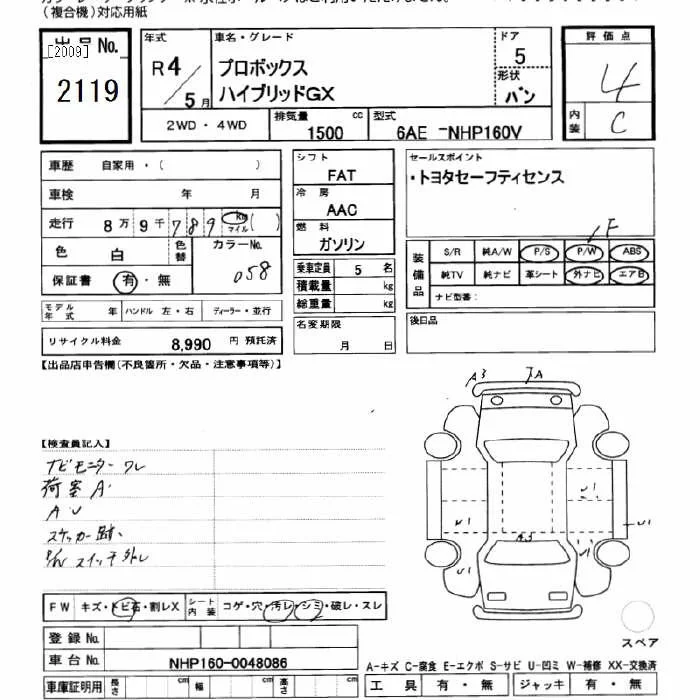 (複合機)対応用紙
出品No.
[2009]
2119
年式
R4/5月
車名・グレード
プロボックス
ハイブリッドGX
ドア
5
形状
バン
2WD・4WD
排気量 1500 cc
型式 6AE -NHP160V
評価点
4
内装 C
車歴 自家用・( )
車検 年 月
走行 8万9千789 km マイル ( )
色 白
色替
カラーNo.
058
保証書 有・無
モデル年式 年 ハンドル 左・右 ディーラー・並行
リサイクル料金 8,990 円 預託済
シフト
FAT
冷房
AAC
燃料
ガソリン
乗車定員 5 名
積載量 kg
総重量 kg
名変期限
月 日
セールスポイント
・トヨタセーフティセンス
F
装備品
S/R 純A/W P/S P/W ABS
純TV 純ナビ 革シート 外ナビ エアB
ナビ型番:
後日品
【出品店申告欄(不良箇所・欠品・注意事項等)】
【検査員記入】
ナビモニターワレ
荷室A'
AU
ステッカー跡
P/W スイッチ外レ
A3
A
A3
U1
U1
U1
U1
U1
FW キズ・トビ石・割レX シート内装 コゲ・穴・汚レ・シミ・破レ・スレ
登録No.
車台No. NHP160-0048086
車庫証明用 長さ cm 幅 cm 高さ cm
スペア
A-キズ C-腐食 E-エクボ S-サビ U-凹ミ W-補修 XX-交換済
工具 有・無 ジャッキ 有・無